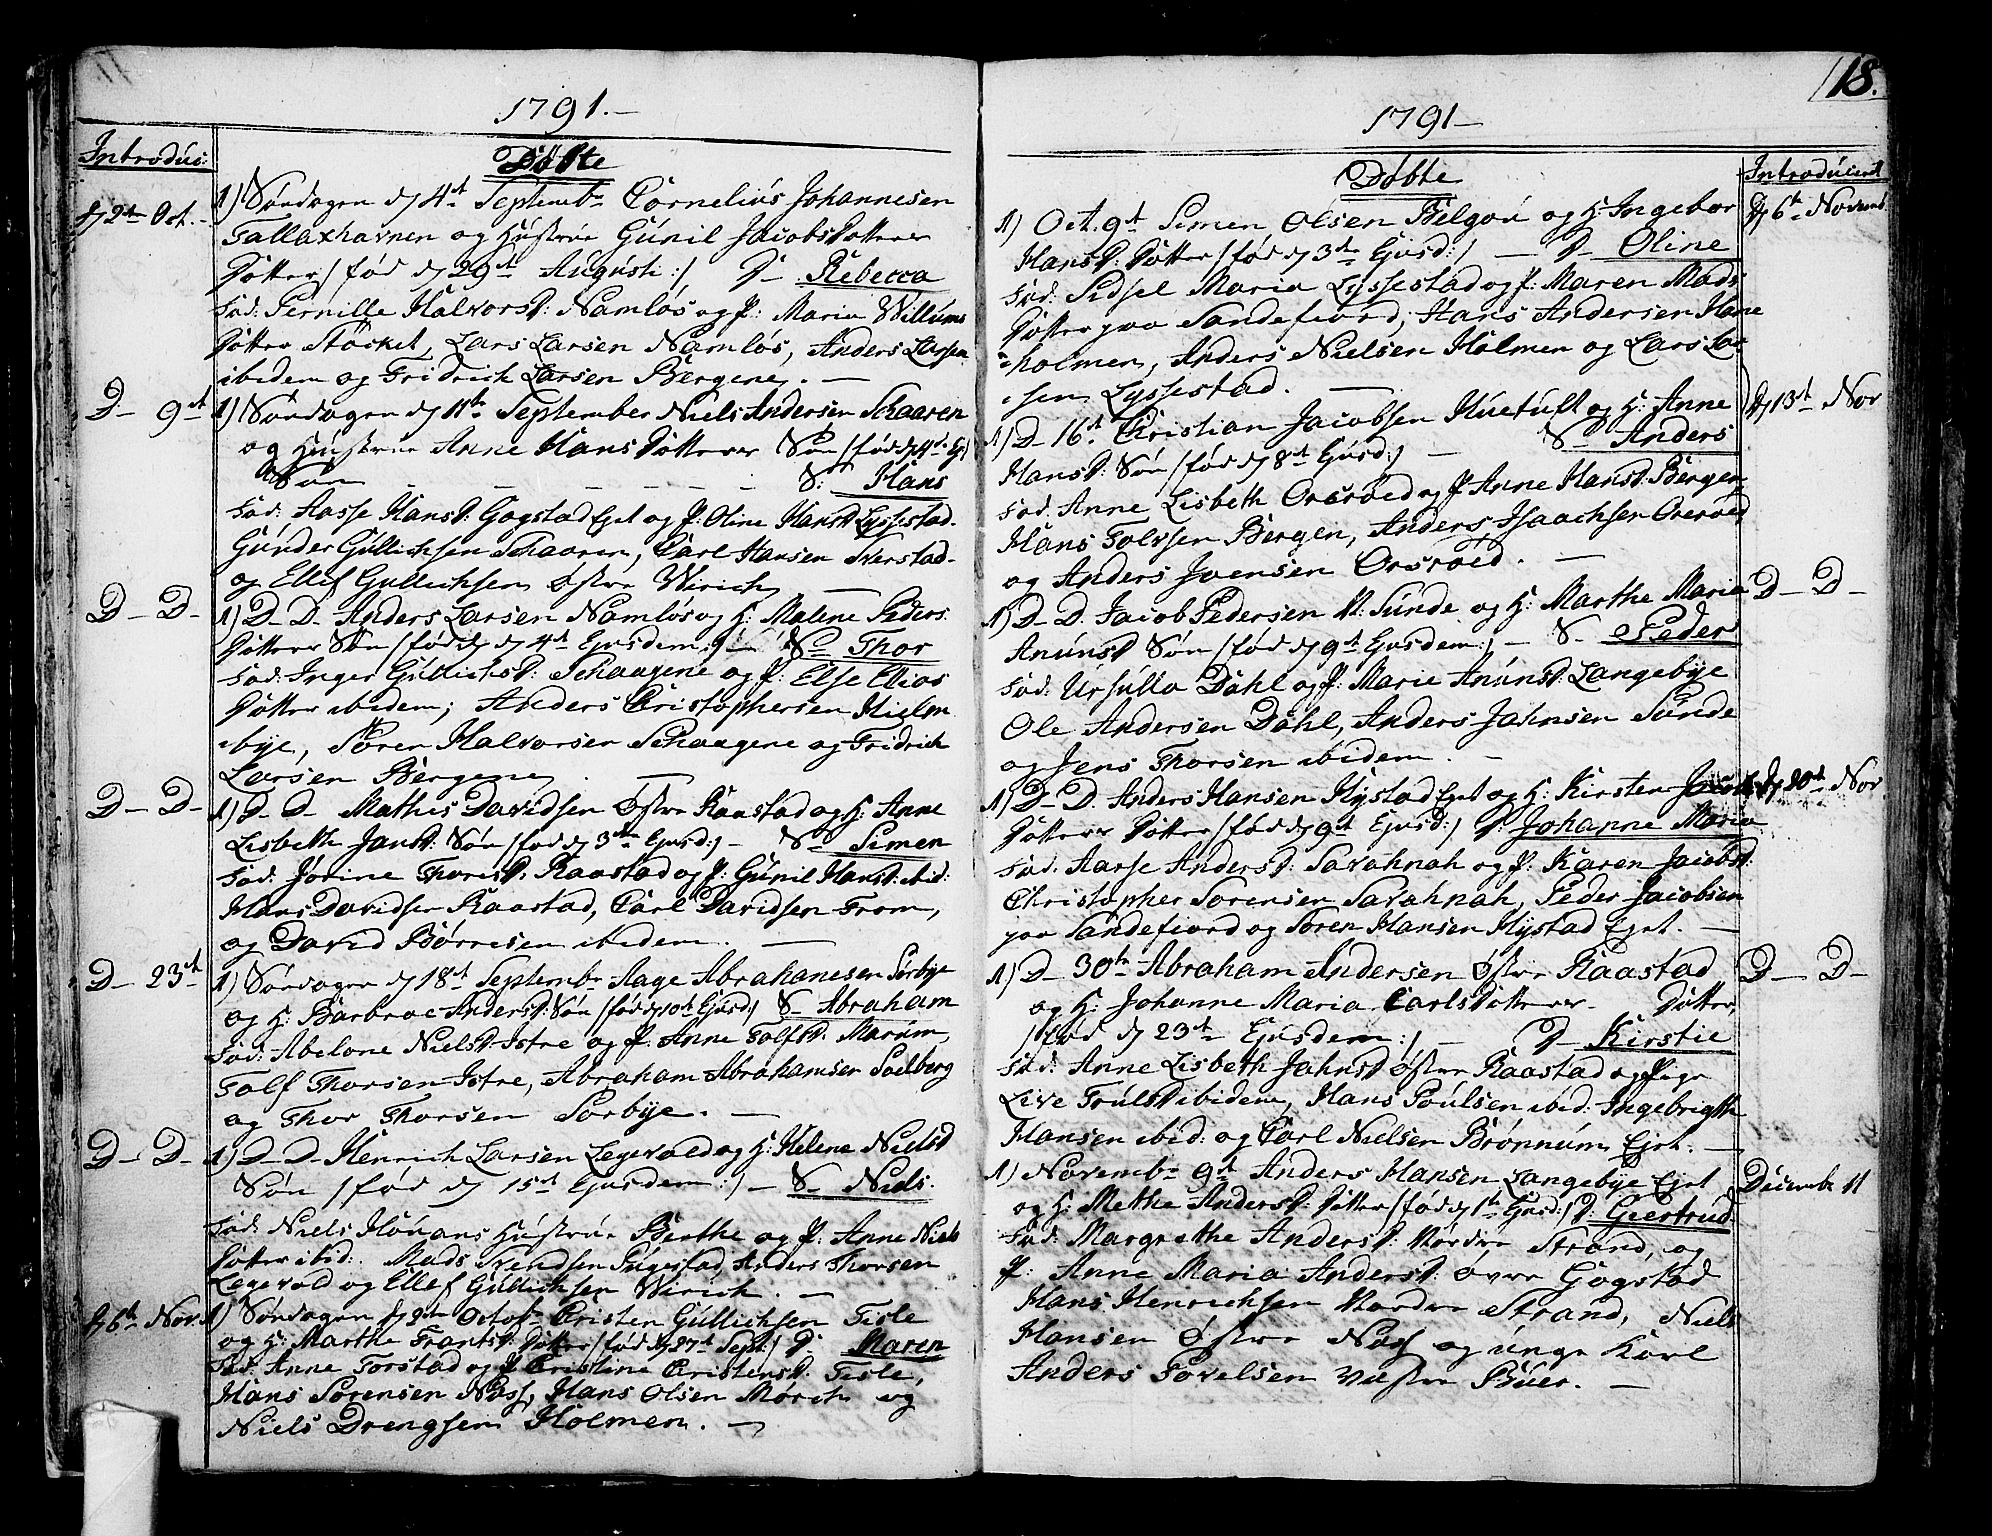 1791.-
Introduc:
Döbte
d 2den Oct.-
1) Söndagen d 4de Septembr Cornelius Johannesen
Tallaxhavnen og Hustrue Gunil JacobsDotters
Dotter /: fød d 29de Augusti :/ D- Rebecca
Fad: Pernille HalvorsD: Namløs og P: Maria Willums
Dotter Stöcket, Lars Larsen Namløs, Anders Larsen
ibidem og Fridrich Larsen Bergene. -
D- 9de
1) Søndagen d 11te September Niels Andersen Schaaren
og Hustrue Anne HansDotters Søn /: fød d 4de Ej:/
Søn - - - - - - S: Hans
Fad: Aasse HansD: Gogstad Ejet og P: Oline HansD Lyssestad.
Gunder Gullichsen Schaaren, Carl Hansen Sverstad
og Ellef Gullichsen Østre Wirich -
D- D-
1) D- D- Anders Larsen Namløs og H: Malene Peders
Dotters Søn /: fød d 4de Ejusdem :/ S- Thor
Fad: Inger GullichsD: Schaagene og P: Else Elias
Dotter ibidem; Anders Christophersen Hielm
bye, Søren Halvorsen Schaagene og Fridrich
Larsen Bergene -
D- D-
1) D- D- Mathis Davidsen Østre Raastad og H: Anne
Lisbeth JansD: Søn /: fød d 3die Ejusd:/- S- Simen
Fad: Jorine ThorisD: Raastad og P: Gunil HansD: ibid:
Hans Davidsen Raastad, Carl Davidsen From,
og David Børresen ibidem. -
D- 23de
1) Søndagen d 18de Septembr Aage Abrahamsen Sørbye
og H: Barbroe AndersD: Søn /: fød d 10de Ejusd:/ S- Abraham
Fad: Abelone NielsD: Istre og P: Anne TolfsD: Marum,
Tolf Thorsen Istre, Abraham Abrahamsen Solberg
og Thor Thorsen Sørbye. -
D- D-
1) D- D- Henrich Larsen Legevold og H: Helene NielsD
Søn /: fød d 15de Ejusdem :/- S- Niels.
Fad: Niels Houans Hustrue Berthe og P: Anne Niels
Dotter ibid: Mads Svendsen Fugestad, Anders Thorsen
Legevold og Ellef Gullichsen Wirich. -
d 6te Nov.
1) Søndagen d 2den Octobr Cristen Gullichsen Fisle
og H: Marthe FrantsD: Dotter /: fød d 27de Sept:/ D: Maren
Fad: Anne Torstad og P: Cristine CristensD: Fisle,
Hans Sørensen Næss, Hans Olsen Mørch og
Niels Drengsen Holmen. -
18.
1791-
Døbte
Introduceret
1) Oct. 9de Simen Olsen Helgou og H: Ingebor
HansD: Dotter /: fød d 3die Ejusd:/ - D- Oline
d 6te Novemb
Fad: Sidsel Maria Lyssestad og P: Maren Mads
Dotter paa Sandefiord, Hans Andersen Hane
holmen, Anders Nielsen Holmen og Lars Lar
sen Lyssestad. -
1) D- 16de Christian Jacobsen Huetuft og H: Anne
HansD: Søn /: fød d 8de Ejusd:/ - S- Anders
d 13de Nov
Fad: Anne Lisbeth Orerød og P Anne HansD: Bergen,
Hans Tolvsen Bergen, Anders Isaachsen Orerød
og Anders Joensen Orerød. -
1) D- D. Jacob Pedersen N: Sunde og H: Marthe Maria
AnunsD Søn /: fød d 9de Ejusdem:/- S- Peder
D- D-
Fad: Ursulla Dahl og P: Marie AnunsD: Langebye
Ole Andersen Dahl, Anders Jahnsen Sunde
og Jens Thorsen ibidem. -
1) D- D. Anders Hansen Hystad Ejet og H: Kirsten Jacobs
Dotters Dotter /: fød d 9de Ejusd:/ D: Johanne Maria
d 20de Nov
Fad: Aasse AndersD: Savahnah og P: Karen JacobsD:
Christopher Sørensen Savahnah, Peder Jacobsen
paa Sandefiord og Søren Hansen Hystad Ejet. -
1) D- 30te Abraham Andersen Østre Raastad
og H: Johanne Maria CarlsDotters Dotter,
/: fød d 23de Ejusdem:/- D- Kirstie
D- D-
Fad: Anne Lisbeth JahnsD Østre Raastad og Pige
Live TrulsD ibidem, Hans Poulsen ibid: Ingebrigth
Hansen ibid: og Carl Nielsen Brønnum Ejet. -
1) Novembr 9de Anders Hansen Langebye Ejet
og H: Methe AndersD: Dotter /: fød d 1te Ejusd:/ D: Geertrud
Decembr 11
Fad: Margrethe AndersD: Nordre Strand, og
P: Anne Maria AndersD: øvre Gogstad
Hans Henrichsen Nordre Strand, Niels
Hansen Østre Næss og unge Karl
Anders Torelsen Vestre Buer. -